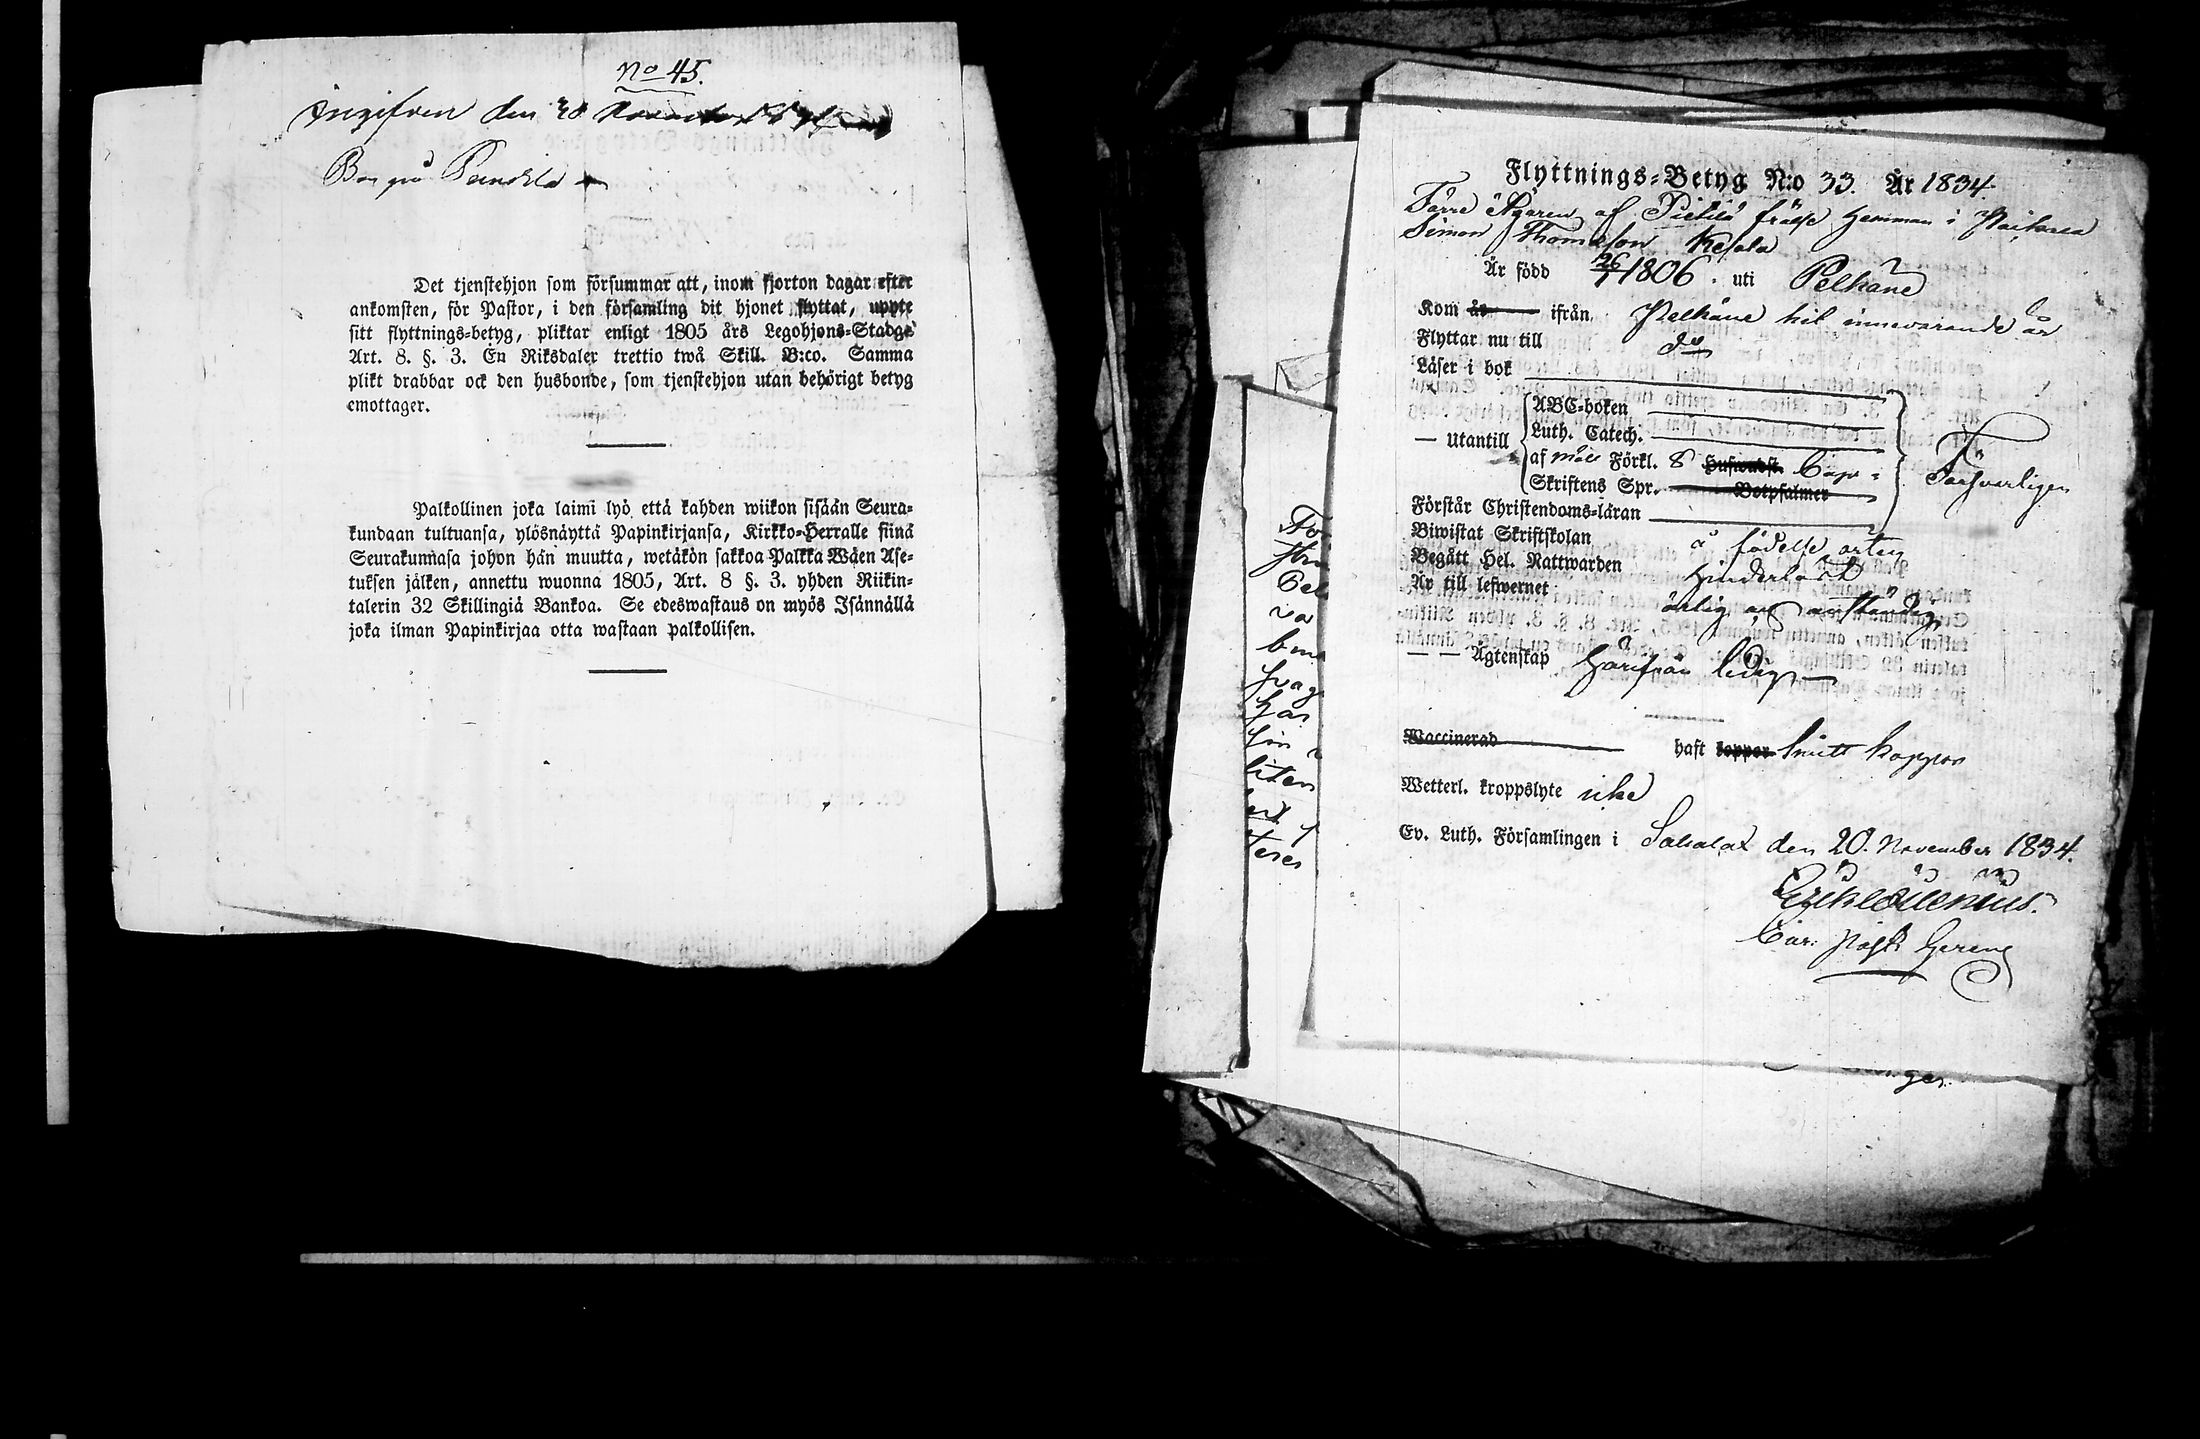 No 45.
Ingifven den 30 November 1834
Bor på Penttilä
Det tjenstehjon som försummar att, inom fjorton dagar efter
ankomsten, för Pastor, i den församling dit hjonet flyttat, uppte
sitt flyttnings-betyg, pliktar enligt 1805 års Legohjons-Stadge
Art. 8. §. 3. En Riksdaler trettio twå Skill. B:co. Samma
plikt drabbar ock den husbonde, som tjenstehjon utan behörigt betyg
emottager.
Palkollinen joka laimi lyö että kahden wiikon sisään Seura-
kundaan tultuansa, ylösnäyttä Papinkirjansa, Kirkko-Herralle siinä
Seurakunnasa johon hän muutta, wetäkön sakkoa Palkka Wäen Ase-
tuksen jälken, annettu wuonna 1805, Art. 8 §. 3. yhden Riikin-
talerin 32 Skillingiä Bankoa. Se edeswastaus on myös Isännällä
joka ilman Papinkirjaa otta wastaan palkollisen.
Flyttnings-Betyg N:o 33. År 1834.
Förre Ägaren af Pietilä frälse hemman i
Simon Thomasson
Är född 26/1 1806. uti Pelkäne
Kom år ifrån Pelkäne hit innevarande år
Flyttar nu till do do
Läser i bok
ABC-boken
— Utantill Luth. Catech.
af Förkl. 8 Huswudst. Cap: Försvarligen
Skriftens Spr. Botpsalmer
Förstår Christendoms-läran
Biwistat Skriftskolan å födelse orten
Begått Hel. Nattwarden hinderlöst
Är till lefwernet ärlig och anständig
— — Ägtenskap härifrån ledig
Waccinerad haft koppor Smitt koppor
Wetterl. kroppslyte icke
Ev. Luth. Församlingen i Sahalax den 20. November 1834.